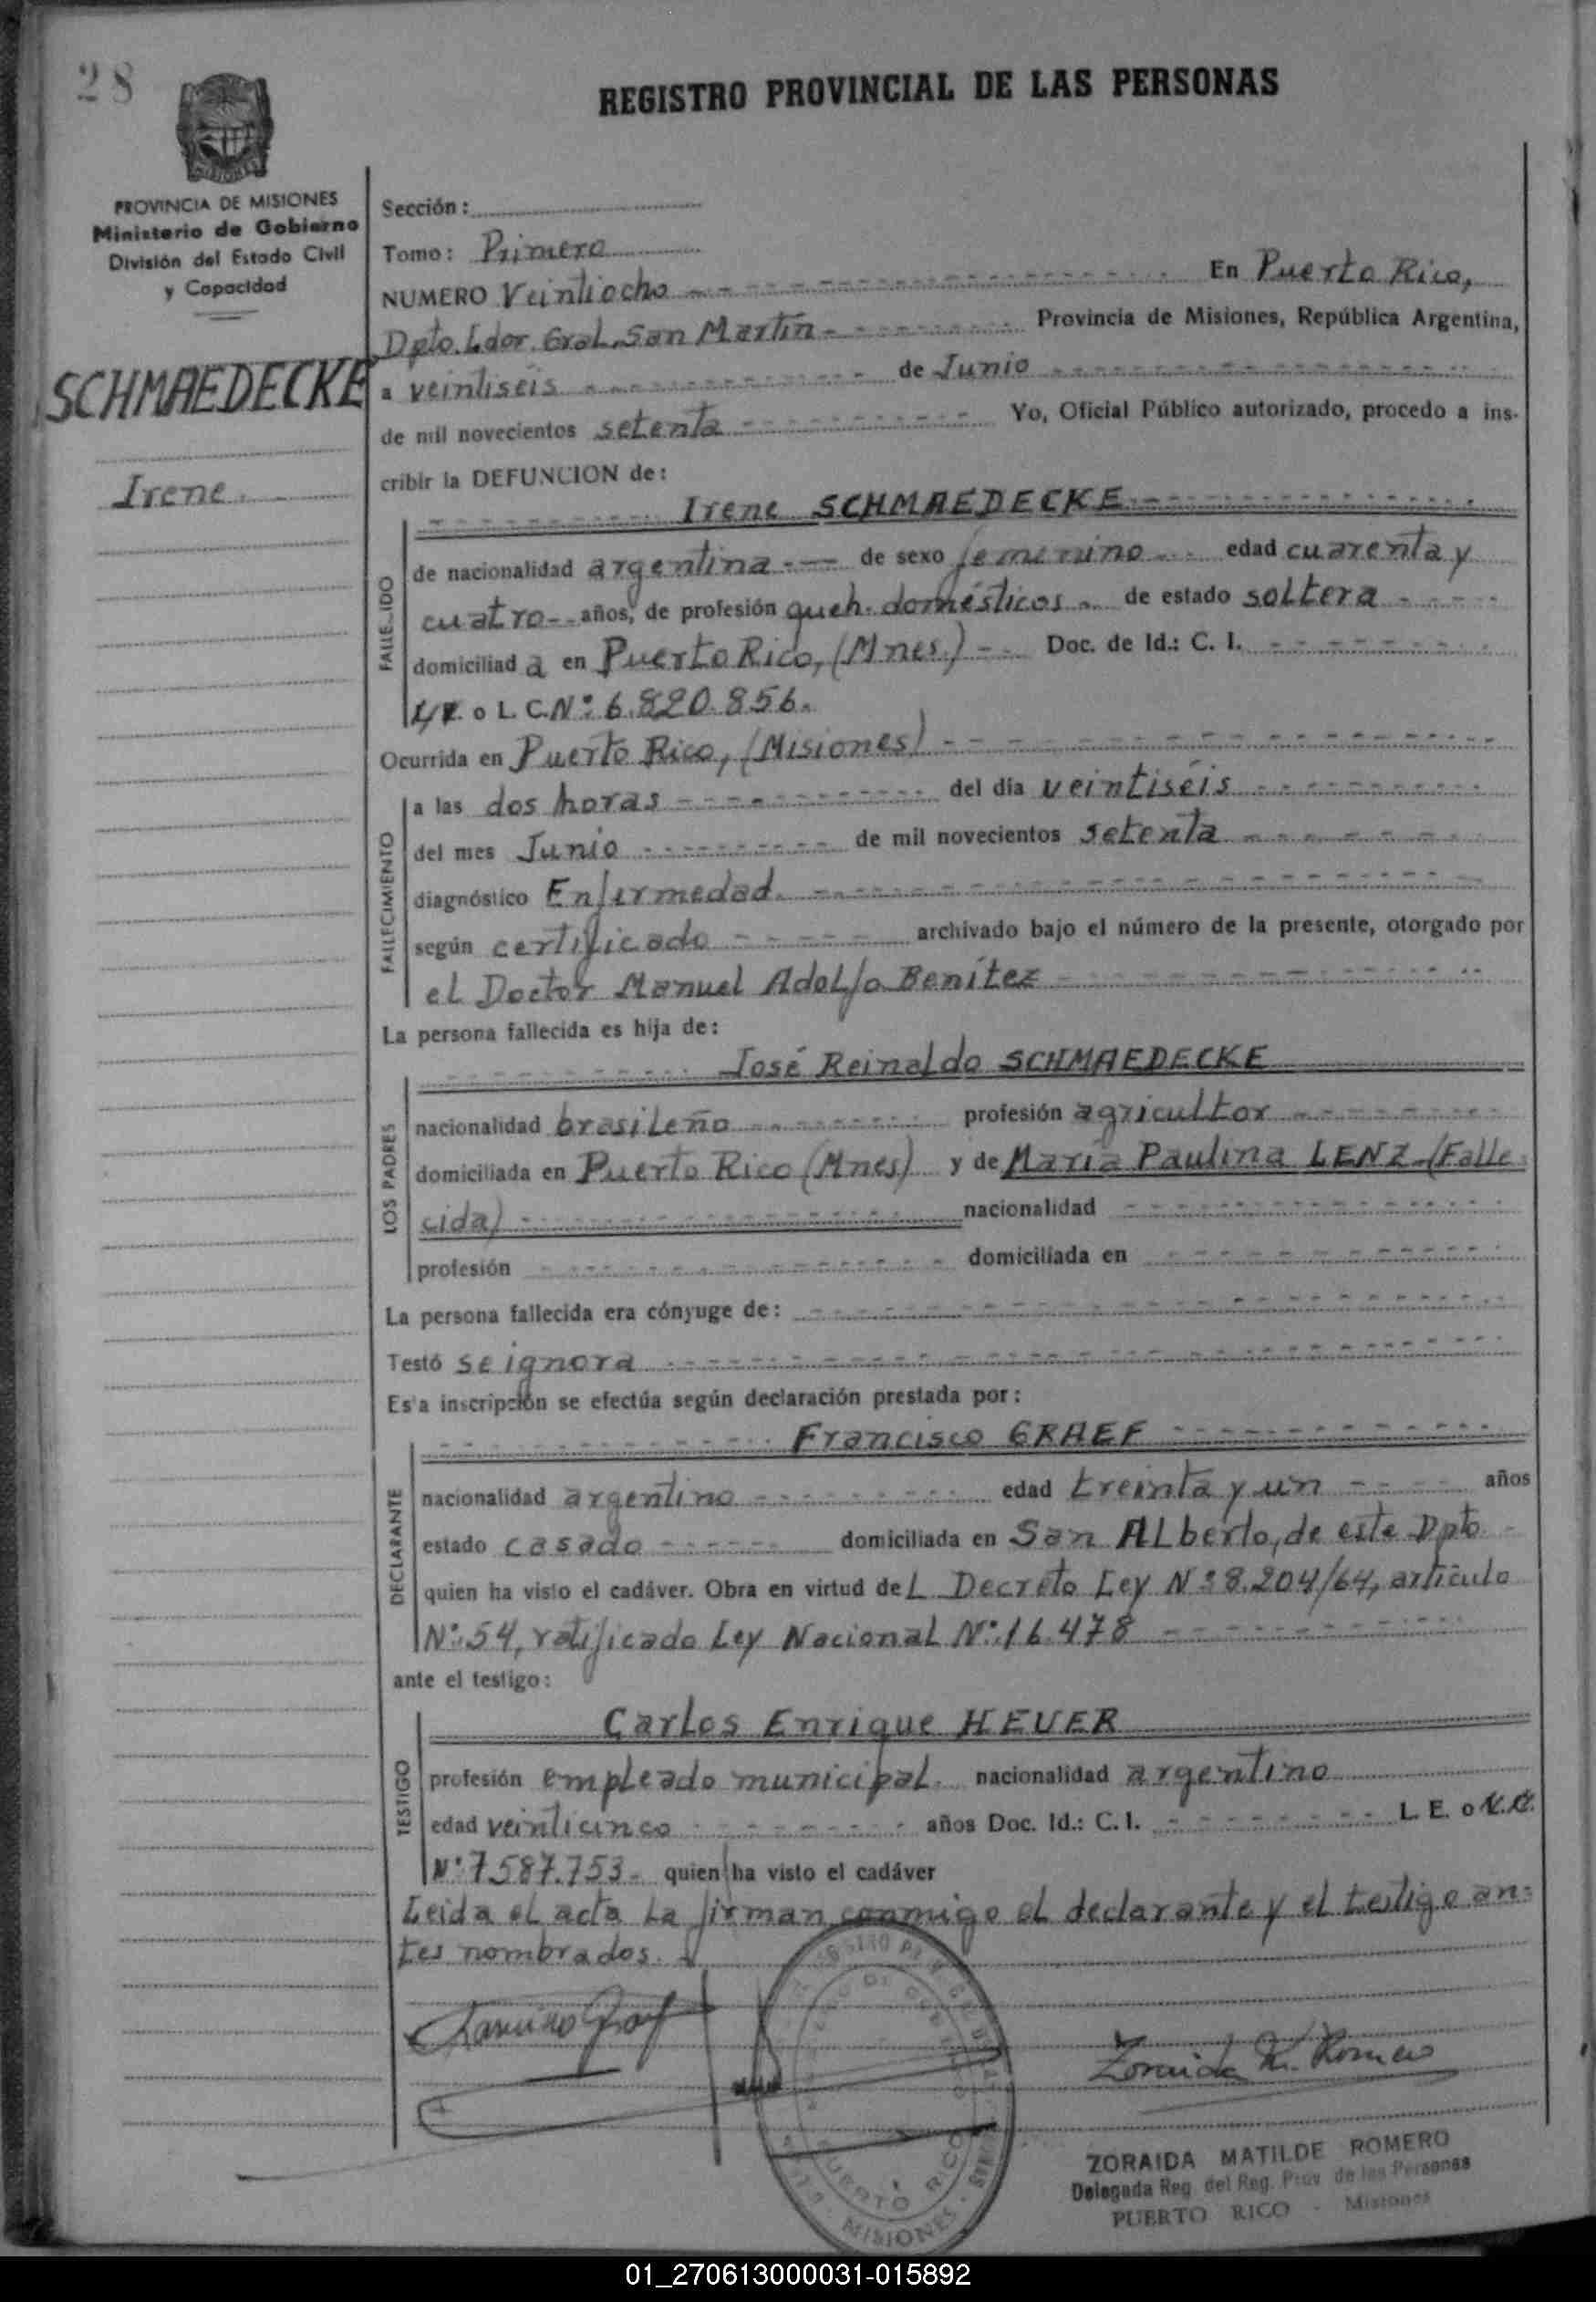 28
REGISTRO PROVINCIAL DE LAS PERSONAS
PROVINCIA DE MISIONES
Ministerio de Gobierno
División del Estado Civil
y Capacidad
SCHMAEDECKE
Irene.
Sección:
Tomo: Primero
NUMERO Veintiocho En Puerto Rico,
Dpto. Ldor. Gral. San Martín- Provincia de Misiones, República Argentina,
a veintiséis de Junio
de mil novecientos setenta Yo, Oficial Público autorizado, procedo a ins-
cribir la DEFUNCION de:
Irene SCHMAEDECKE
FALLECIDO
de nacionalidad argentina de sexo femenino edad cuarenta y
cuatro años, de profesión queh. domésticos de estado soltera
domiciliad a en Puerto Rico, (Mnes.) Doc. de Id.: C. I.
o L. C. Nº: 6.820.856.
Ocurrida en Puerto Rico, (Misiones)
FALLECIMIENTO
a las dos horas del día veintiséis
del mes Junio de mil novecientos setenta
diagnóstico Enfermedad.
según certificado archivado bajo el número de la presente, otorgado por
el Doctor Manuel Adolfo Benítez
La persona fallecida es hija de:
José Reinaldo SCHMAEDECKE
LOS PADRES
nacionalidad brasileño profesión agricultor
domiciliada en Puerto Rico (Mnes) y de María Paulina LENZ (Falle
cida) nacionalidad
profesión domiciliada en
La persona fallecida era cónyuge de:
Testó se ignora
Esta inscripción se efectúa según declaración prestada por:
Francisco GRAEF
DECLARANTE
nacionalidad argentino edad treinta y un años
estado casado domiciliada en San Alberto, de este Dpto
quien ha visto el cadáver. Obra en virtud del Decreto Ley Nº 8.204/64, artículo
Nº. 54, ratificado Ley Nacional Nº: 16.478
ante el testigo:
Carlos Enrique HEUER
TESTIGO
profesión empleado municipal. nacionalidad argentino
edad veinticinco años Doc. Id.: C. I. L. E. o L.C.
Nº 7.587.753. quien ha visto el cadáver
Leída el acta la firman conmigo el declarante y el testigo an-
tes nombrados.
Zoraida M. Romero
PUERTO RICO
MISIONES
ZORAIDA MATILDE ROMERO
Delegada Reg. del Reg. Prov. de las Personas
PUERTO RICO - Misiones
01_270613000031-015892